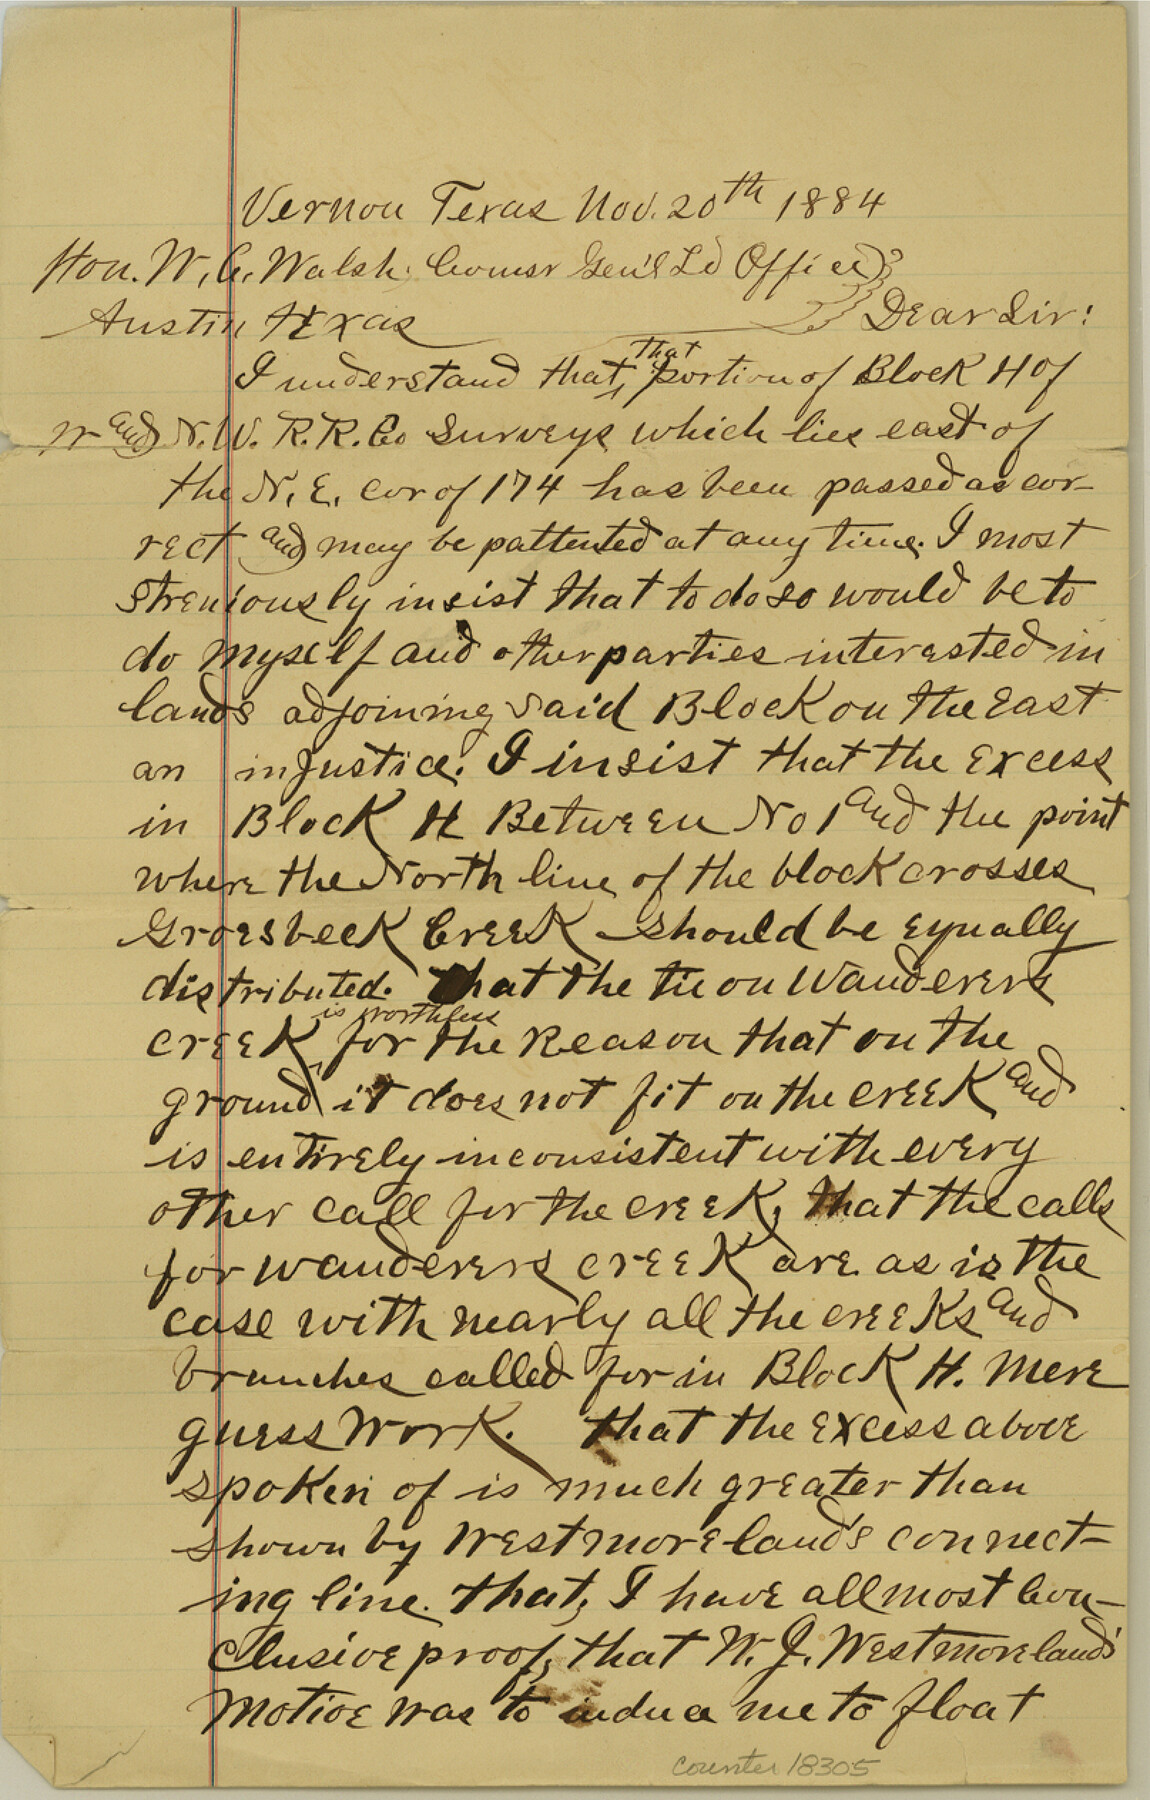 Vernon Texas Nov. 20th 1884
Hon. W. C. Walsh. Comsr Gen'l Ld Office
Austin Texas Dear Sir:
I understand that, that portion of Block H of
W and N. W. R. R. Co Surveys which lies east of
the N. E. cor of 174 has been passed as cor-
rect and may be pattented at any time. I most
strenuously insist that to do so would be to
do myself and other parties interested in
lands adjoining said Block on the East
an injustice. I insist that the excess
in Block H Between No 1 and the point
where the North line of the block crosses
Groesbeck Creek should be equally
distributed. that the tie on Wanderers
creek is worthless for the Reason that on the
ground it does not fit on the creek and
is entirely inconsistent with every
other call for the creek, that the calls
for wanderers creek are as is the
case with nearly all the creeks and
branches called for in Block H. mere
guess work. that the excess above
spoken of is much greater than
shown by Westmoreland's connect-
ing line. that, I have allmost con-
clusive proof, that W. J. Westmoreland's
motive was to induce me to float
counter 18305